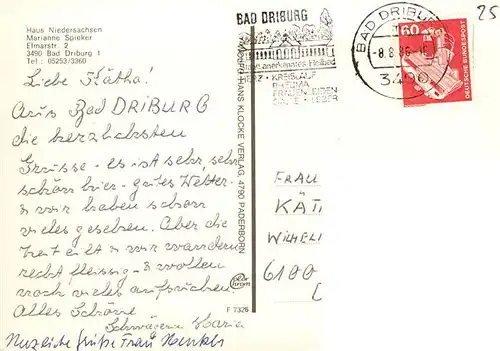 Haus Niedersachsen
Marianne Spieker
Elmarstr. 2
3490 Bad Driburg 1
Tel.: 05253/3360
Liebe Kätha!
Aus Bad DRIBURG
die herzlichsten
Grüsse - es ist sehr, sehr
schön hier - gutes Wetter -
& wir haben schon
vieles gesehen. Aber die
Zeit eilt & wir wandern
recht fleissig - & wollen
noch vieles aufsuchen!
Alles Schöne
Schwägerin Maria
Herzliche Grüße Frau Henkes
HANS KLOCKE VERLAG, 4790 PADERBORN
F 7326
BAD DRIBURG
Staatl. anerkanntes Heilbad
HERZ · KREISLAUF
RHEUMA
FRAUENLEIDEN
GALLE · LEBER
BAD DRIBU
-8.8.86-
3490
60
DEUTSCHE BUNDESPOST
25
FRAU
KÄT
WILHEL
6100